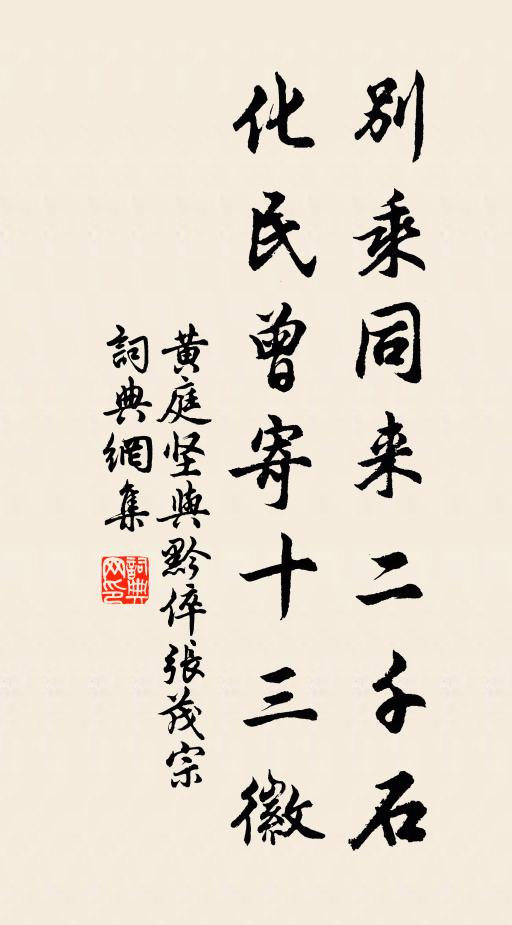 别乘同来二千石
化民曾寄十三徽
黄庭坚與黔倅張茂宗
詞典網集
詞典网印